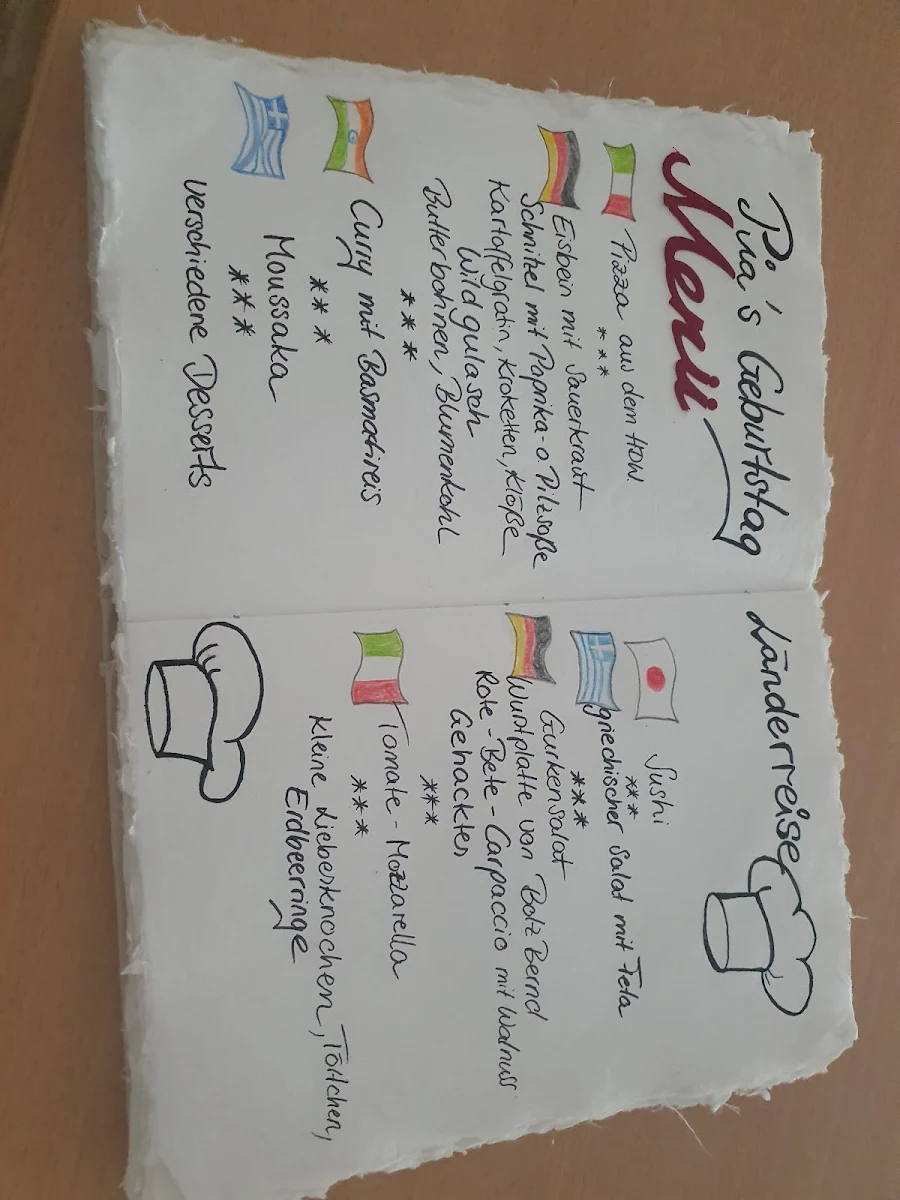 Pia's Geburtstag
Menü
Pizza aus dem How.
***
Eisbein mit Sauerkraut
Schnitzel mit Paprika- o. Pilzsoße
Kartoffelgratin, Kroketten, Klöße
Wildgulasch
Butterbohnen, Blumenkohl
***
Curry mit Basmatireis
***
Moussaka
***
verschiedene Desserts
Länderreise
Sushi
***
griechischer Salat mit Feta
***
Gurkensalat
Wurstplatte von Botz Bernd
Rote-Bete-Carpaccio mit Walnuss
Gehacktes
***
Tomate-Mozzarella
***
kleine Liebesknochen, Törtchen,
Erdbeerringe